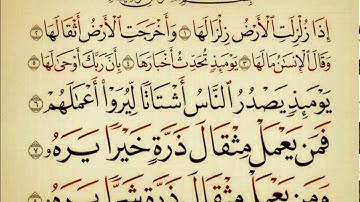 إِذَا زُلْزِلَتِ ٱلْأَرْضُ زِلْزَالَهَا ١ وَأَخْرَجَتِ ٱلْأَرْضُ أَثْقَالَهَا ٢
وَقَالَ ٱلْإِنسَٰنُ مَا لَهَا ٣ يَوْمَئِذٍ تُحَدِّثُ أَخْبَارَهَا ٤ بِأَنَّ رَبَّكَ أَوْحَىٰ لَهَا ٥
يَوْمَئِذٍ يَصْدُرُ ٱلنَّاسُ أَشْتَاتًا لِّيُرَوْا۟ أَعْمَٰلَهُمْ ٦
فَمَن يَعْمَلْ مِثْقَالَ ذَرَّةٍ خَيْرًا يَرَهُۥ ٧
وَمَن يَعْمَلْ مِثْقَالَ ذَرَّةٍ شَرًّا يَرَهُۥ ٨